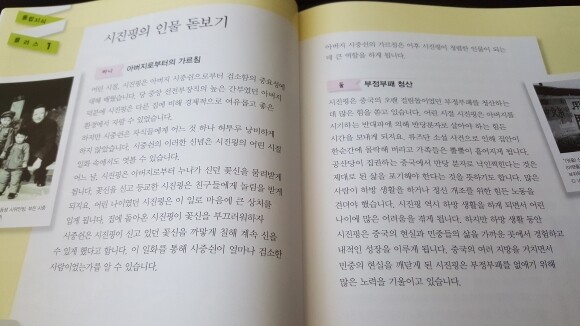 통합지식
플러스 1
시진핑의 인물 돋보기
하나 아버지로부터의 가르침
어린 시절, 시진핑은 아버지 시중쉰으로부터 검소함의 중요성에
대해 배웠습니다. 당 중앙 선전부장직의 높은 간부였던 아버지
덕분에 시진핑은 다른 집에 비해 경제적으로 여유롭고 좋은
환경에서 자랄 수 있었습니다.
하지만 시중쉰은 자식들에게 어느 것 하나 허투루 낭비하게
하지 않았습니다. 시중쉰의 이러한 신념은 시진핑의 어린 시절
일화 속에서도 엿볼 수 있습니다.
어느 날, 시진핑은 아버지로부터 누나가 신던 꽃신을 물려받게
됩니다. 꽃신을 신고 등교한 시진핑은 친구들에게 놀림을 받게
되지요. 어린 나이였던 시진핑은 이 일로 마음에 큰 상처를
입게 됩니다. 집에 돌아온 시진핑이 꽃신을 부끄러워하자
시중쉰은 시진핑이 신고 있던 꽃신을 까맣게 칠해 계속 신을
수 있게 했다고 합니다. 이 일화를 통해 시중쉰이 얼마나 검소한
사람이었는가를 알 수 있습니다.
아버지 시중쉰의 가르침은 이후 시진핑이 청렴한 인물이 되는
데 큰 역할을 하게 됩니다.
둘 부정부패 청산
시진핑은 중국의 오랜 걸림돌이었던 부정부패를 청산하는
데 많은 힘을 쏟고 있습니다. 어린 시절 시진핑은 아버지를
시기하는 반대파에 의해 반당분자로 살아야 하는 힘든
시간을 보내게 되지요. 류즈단 소설 사건으로 인해 집안이
한순간에 몰락해 버리고 가족들은 뿔뿔이 흩어지게 됩니다.
공산당이 집권하는 중국에서 반당 분자로 낙인찍힌다는 것은
제대로 된 삶을 포기해야 한다는 것을 뜻하기도 합니다. 많은
사람이 하방 생활을 하거나 정신 개조를 위한 힘든 노동을
견뎌야 했습니다. 시진핑 역시 하방 생활을 하게 되면서 어린
나이에 많은 어려움을 겪게 됩니다. 하지만 하방 생활 동안
시진핑은 중국의 현실과 민중들의 삶을 가까운 곳에서 경험하고
내적인 성장을 이루게 됩니다. 중국의 여러 지방을 거치면서
민중의 현실을 깨닫게 된 시진핑은 부정부패를 없애기 위해
많은 노력을 기울이고 있습니다.